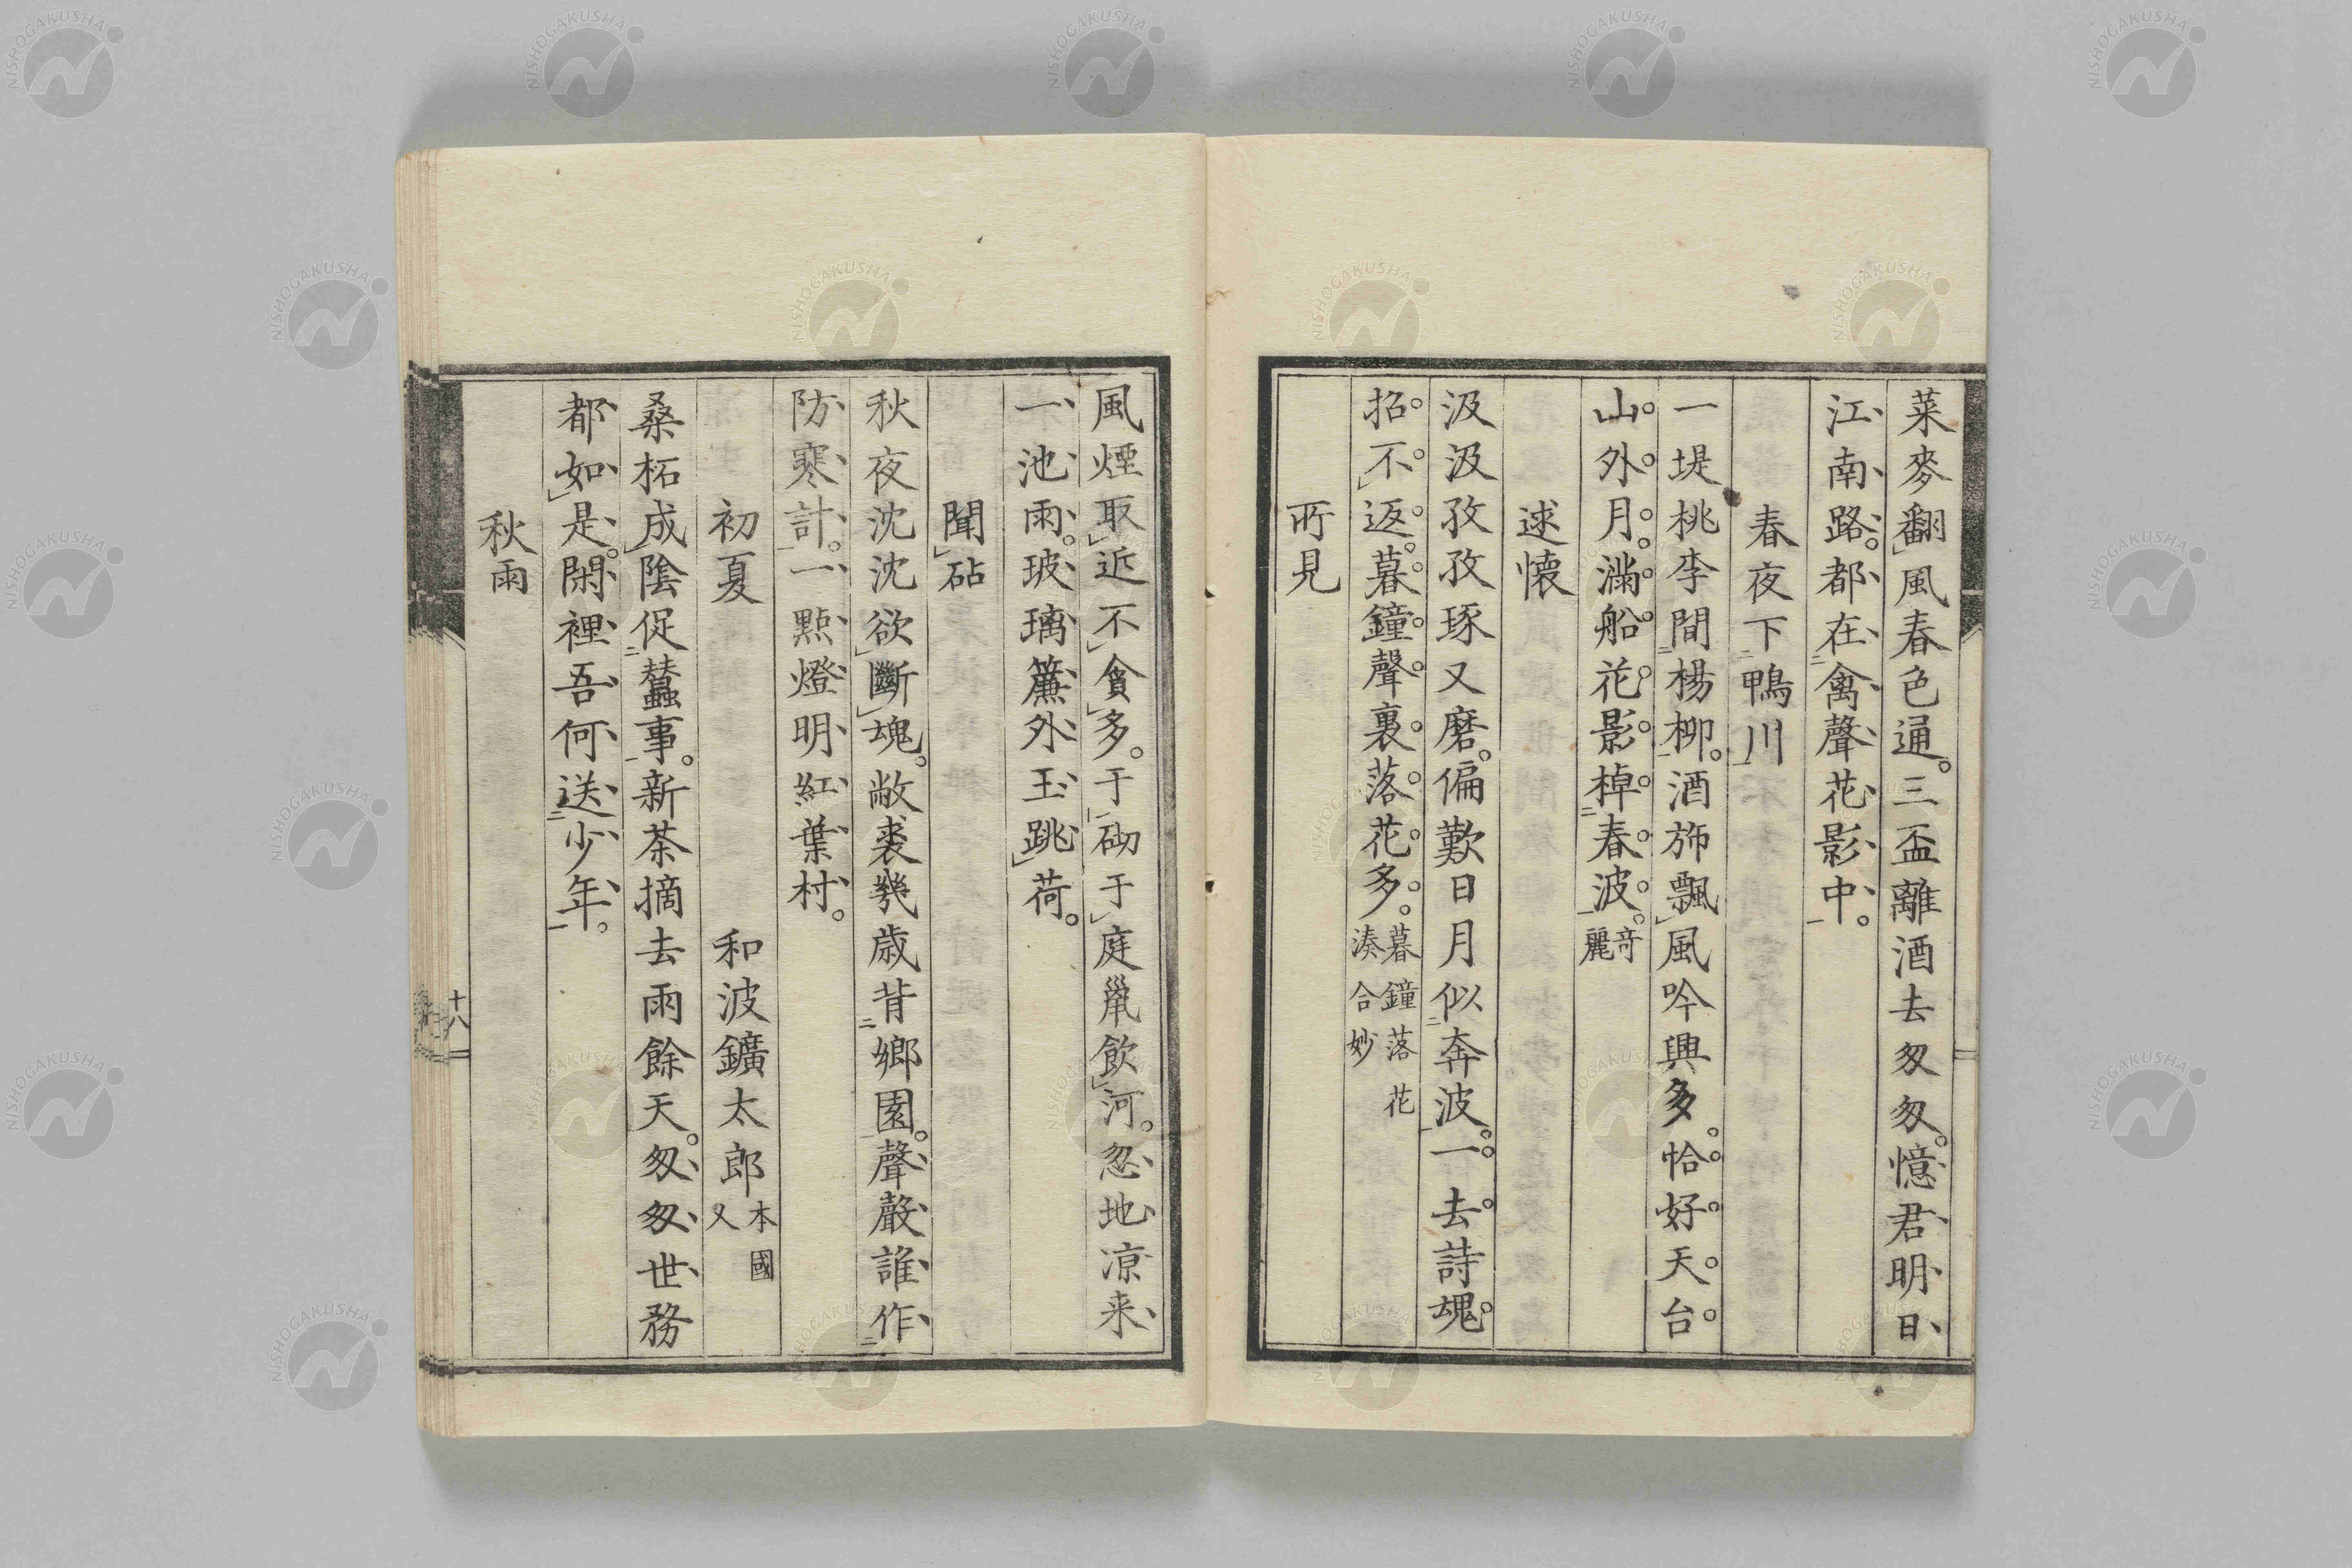 菜麥翻風春色通。三盃離酒去匆匆。憶君明日
江南路。都在禽聲花影中。
春夜下鴨川
一堤桃李間楊柳。酒斾飄風吟興多。恰好天台
山外月。滿船花影棹春波。奇麗
述懷
汲汲孜孜琢又磨。偏歎日月似奔波。一去詩魂
招不返。暮鐘聲裏落花多。暮鐘落花湊合妙
所見
風煙取近不貪多。于砌于庭鼠飲河。忽地凉来
一池雨。玻璃簾外玉跳荷。
聞砧
秋夜沈沈欲斷魂。敝裘幾歳背鄉園。聲聲誰作
防寒計。一點燈明紅葉村。
初夏 和波鑛太郎 本國 又
桑柘成陰促蠶事。新茶摘去雨餘天。匆匆世務
都如是。閑裡吾何送少年。
秋雨
十八
NISHOGAKUSHA